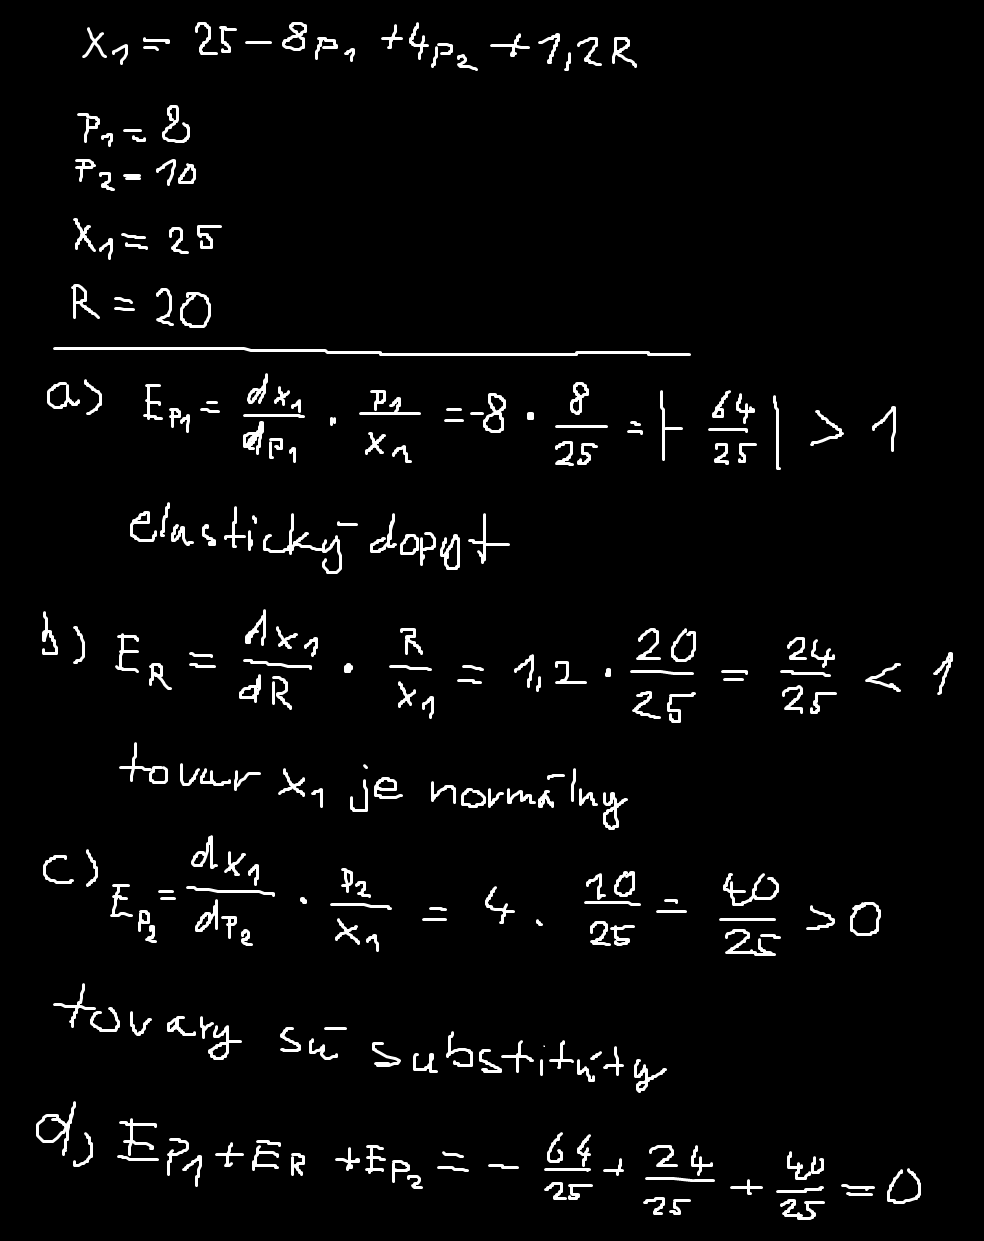 x₁ = 25 - 8p₁ + 4p₂ + 1,2R
P₁ = 8
P₂ = 10
X₁ = 25
R = 20
a) E_P₁ = dx₁/dp₁ · p₁/x₁ = -8 · 8/25 = |- 64/25| > 1
elastický dopyt
b) E_R = dx₁/dR · R/x₁ = 1,2 · 20/25 = 24/25 < 1
tovar x₁ je normálny
c) E_P₂ = dx₁/dp₂ · p₂/x₁ = 4 · 10/25 = 40/25 > 0
tovary sú substitúty
d) E_P₁ + E_R + E_P₂ = - 64/25 + 24/25 + 40/25 = 0